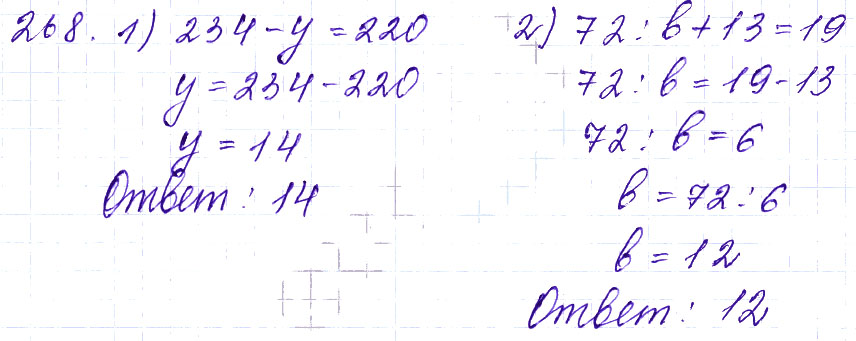 268. 1) 234 - y = 220
y = 234 - 220
y = 14
Ответ: 14
2) 72 : b + 13 = 19
72 : b = 19 - 13
72 : b = 6
b = 72 : 6
b = 12
Ответ: 12